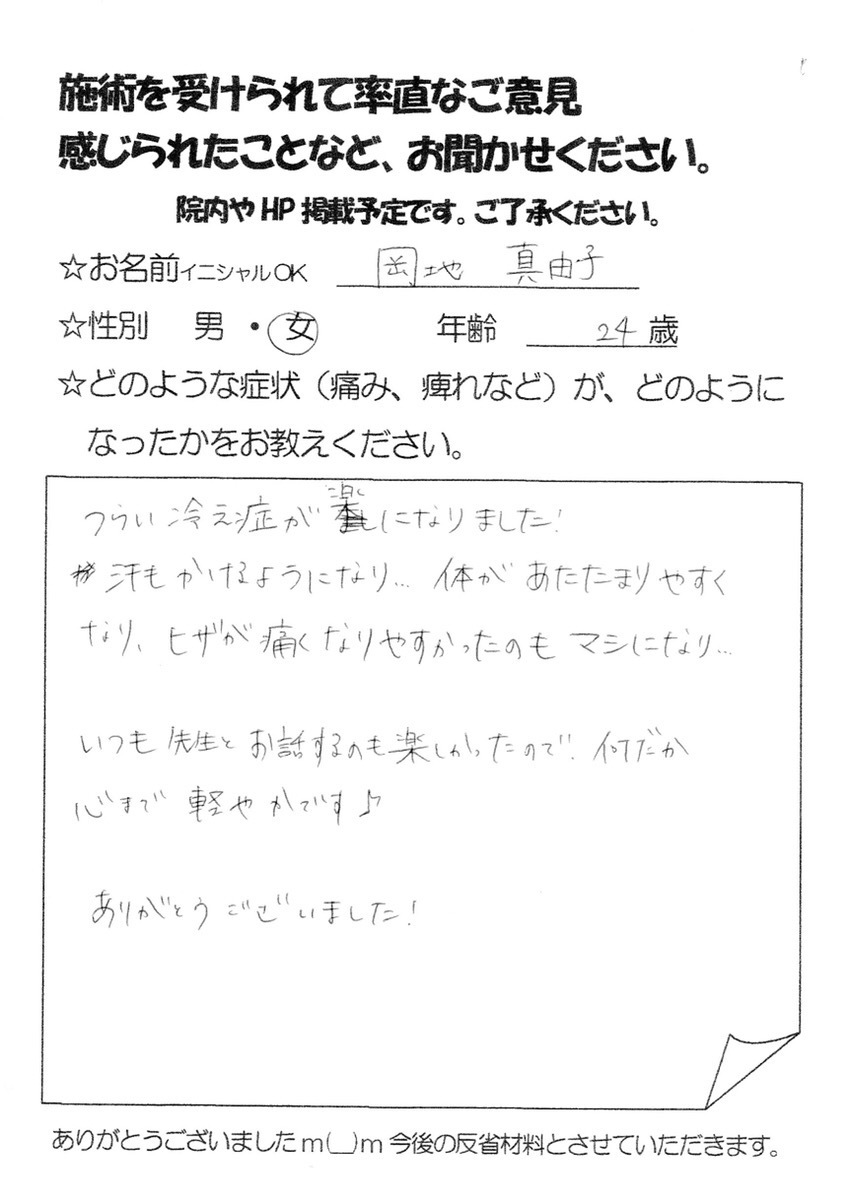 施術を受けられて率直なご意見
感じられたことなど、お聞かせください。
院内やHP掲載予定です。ご了承ください。
☆お名前イニシャルOK 岡地 真由子
☆性別 男・女 年齢 24歳
☆どのような症状（痛み、痺れなど）が、どのように
なったかをお教えください。
つらい冷え症が楽になりました!
汗もかけるようになり… 体があたたまりやすく
なり、ヒザが痛くなりやすかったのもマシになり…
いつも先生とお話するのも楽しかったので、何だか
心まで軽やかです♪
ありがとうございました!
ありがとうございましたm(__)m今後の反省材料とさせていただきます。